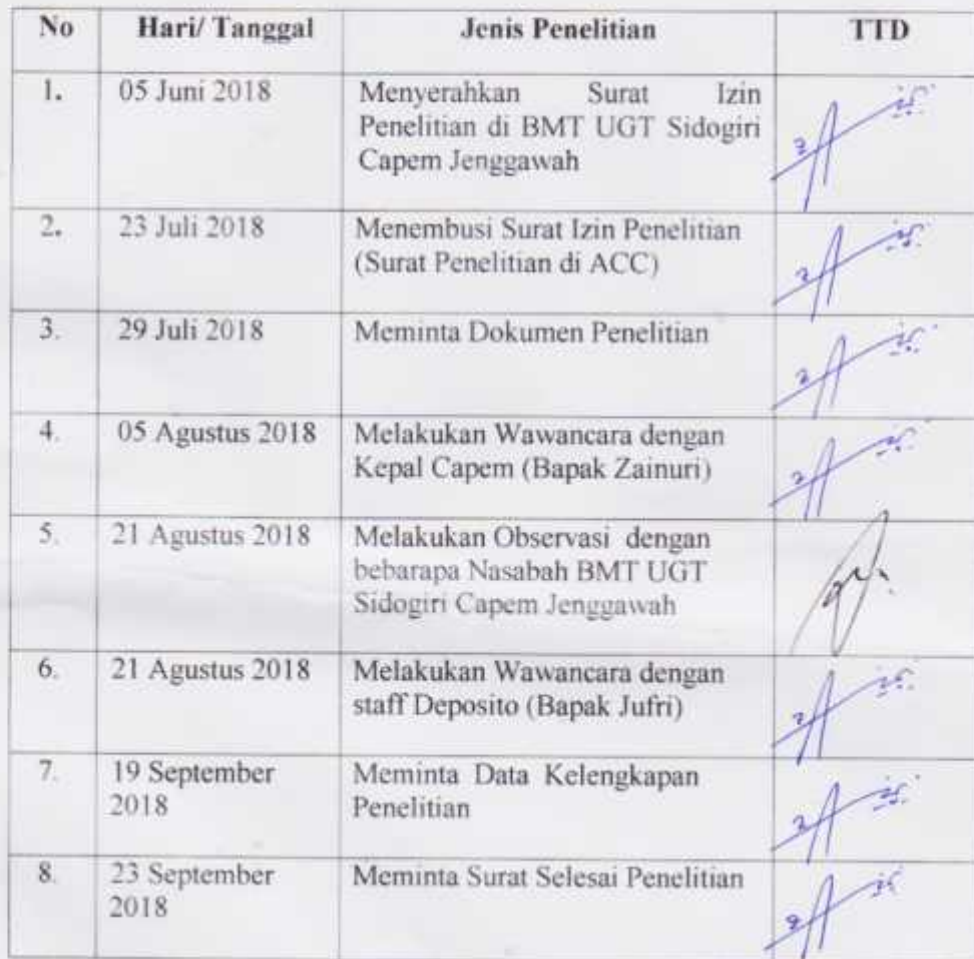 No Hari/ Tanggal Jenis Penelitian TTD
1. 05 Juni 2018 Menyerahkan Surat Izin
Penelitian di BMT UGT Sidogiri
Capem Jenggawah
2. 23 Juli 2018 Menembusi Surat Izin Penelitian
(Surat Penelitian di ACC)
3. 29 Juli 2018 Meminta Dokumen Penelitian
4. 05 Agustus 2018 Melakukan Wawancara dengan
Kepal Capem (Bapak Zainuri)
5. 21 Agustus 2018 Melakukan Observasi dengan
bebarapa Nasabah BMT UGT
Sidogiri Capem Jenggawah
6. 21 Agustus 2018 Melakukan Wawancara dengan
staff Deposito (Bapak Jufri)
7. 19 September Meminta Data Kelengkapan
2018 Penelitian
8. 23 September Meminta Surat Selesai Penelitian
2018